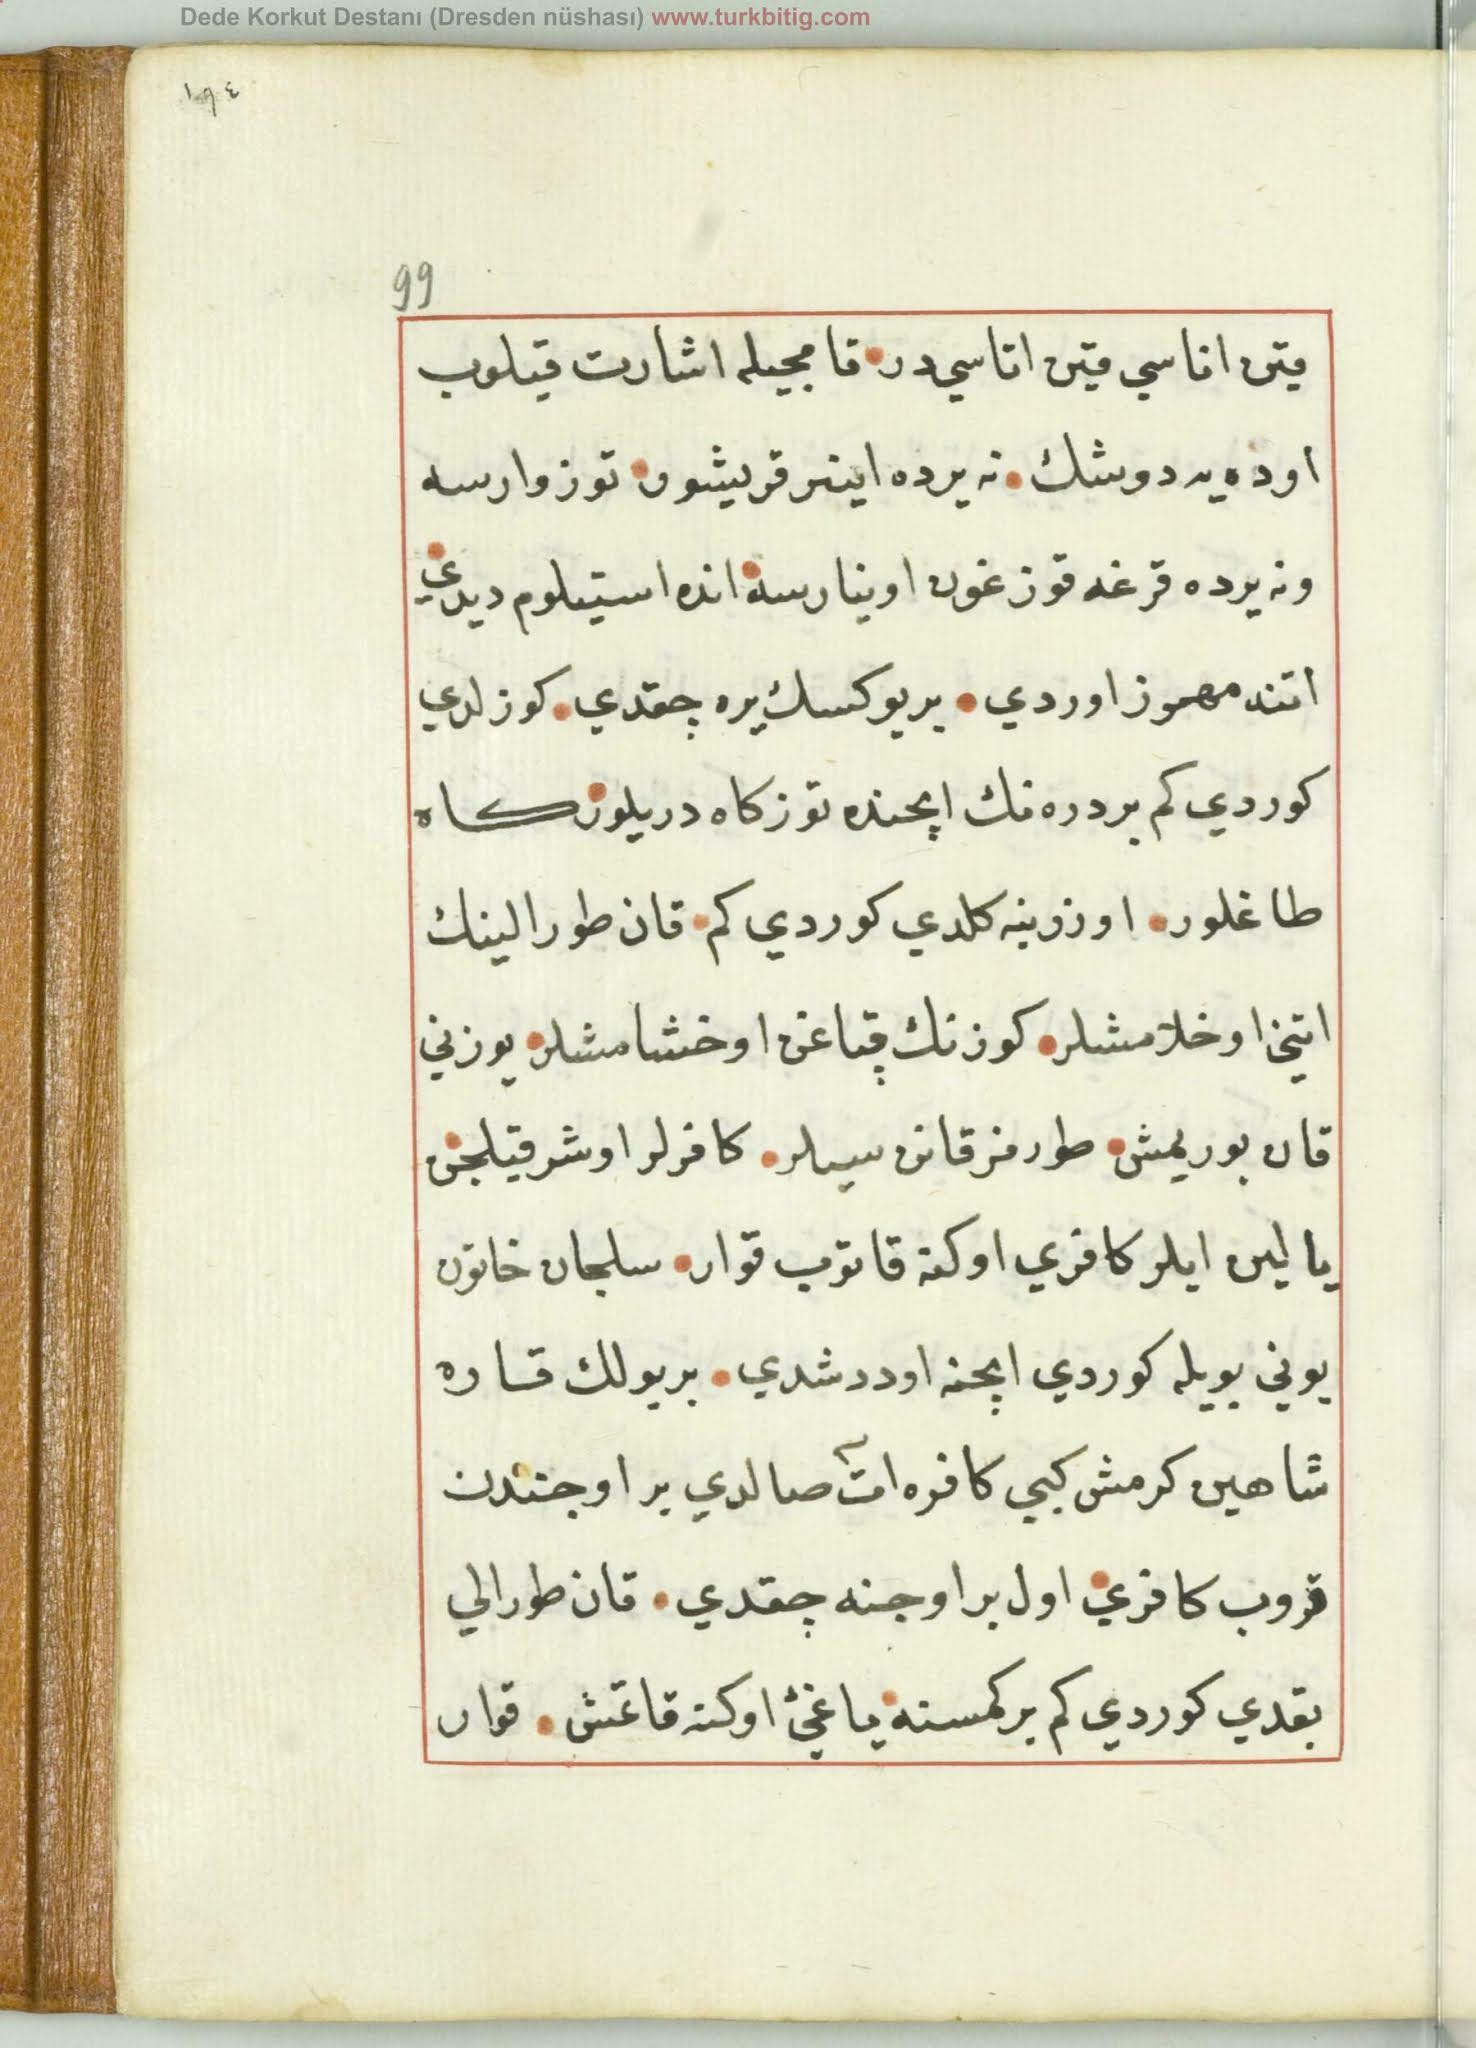 Dede Korkut Destanı (Dresden nüshası) www.turkbitig.com
١٩٤
99
قیتن اناسي قیتن اتاسي در قامچیله اشارت قیلوب
اوده یه دوشك نه یرده اینر قریشور توز وارسه
ونه یرده قرغه قوزغون اوینارسه انده استیلوم دیدي
اتنه مهموز اوردي بر یوکسك یره چقدي کوزلدي
کوردي کم بر دره نك ایچنده توز کاه دریلور کاه
طاغلور اوزرینه کلدي کوردي کم قان طورالینك
اتین اوخلامشلر کوزنك قپاغن اوخشامشلر یوزني
قان بوریمش طورمز قانن سیلر کافرلر اوشر قیلجن
یالین ایلر کافري اوکنه قاتوب قوار سلجان خاتون
بوني بویله کوردي ایچنه اود دشدي بر بولك قاره
شاهین کرمش کبي کافره ات صالدي بر اوجندن
قروب کافري اول بر اوجنه چقدي قان طورالي
بقدي کوردي کم بر کمسنه یاغئ اوکنه قاتمش قوار